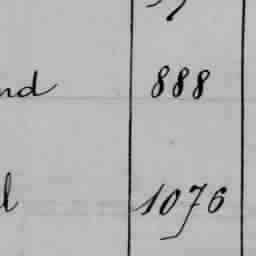 nd 888
1076